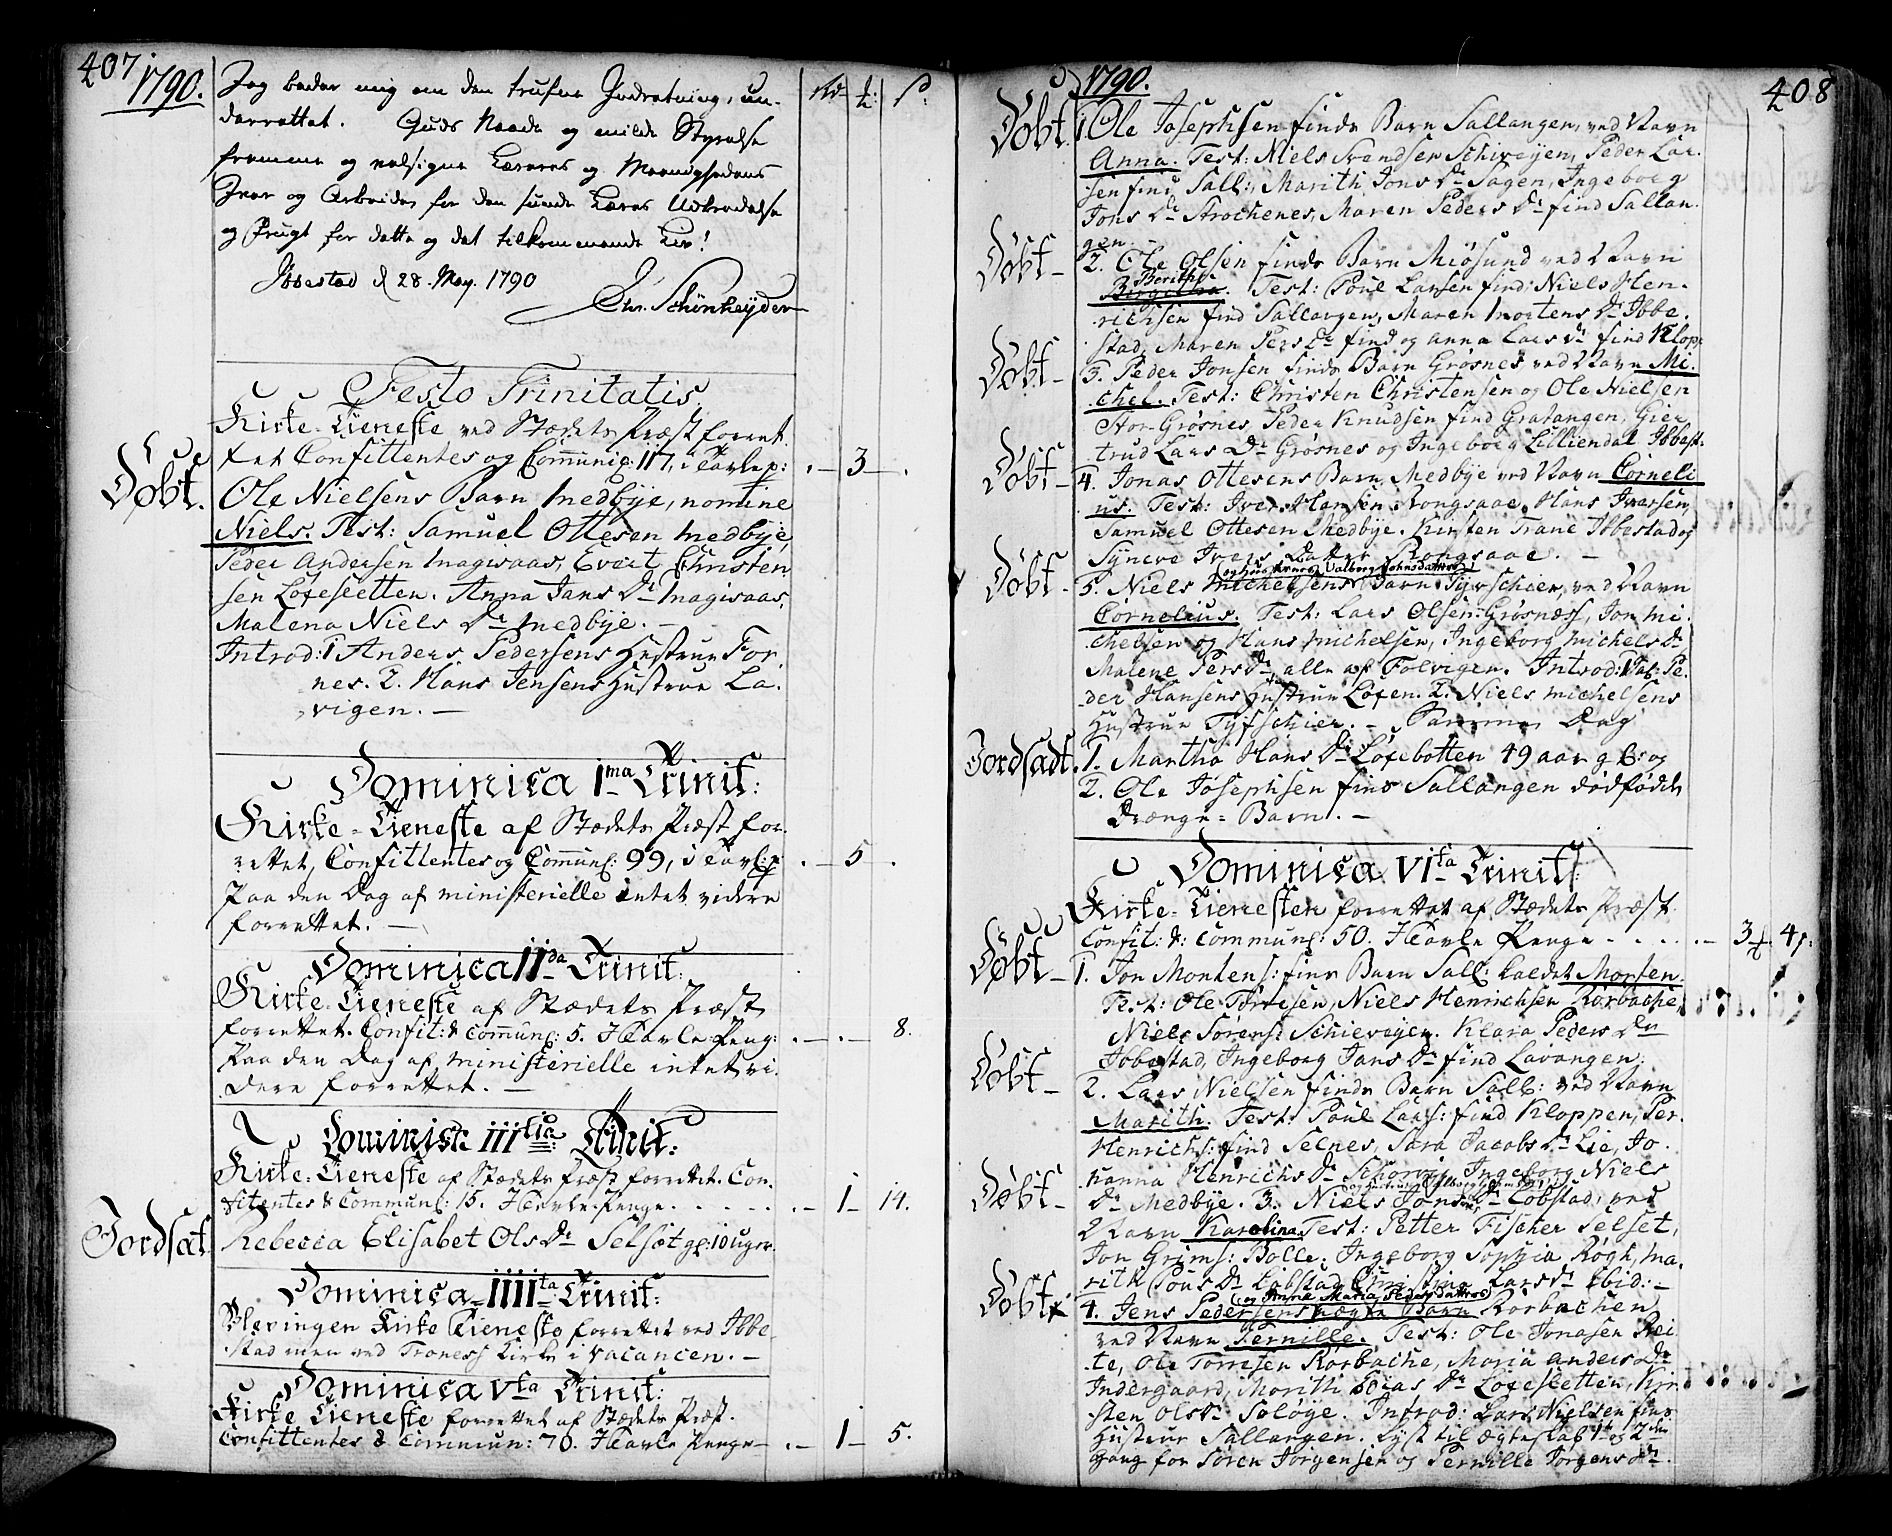 407. 1790.
Jeg beder mig om den trufne Indretning, un-
derrettet. Guds Naade og milde Styrelse
fremme og velsigne Læreres og Menighedens
Iver og Arbeide, for den sunde Læres Udbredelse
og Frugt for dette og det tilkommende Liv!
Ibbestad d 28. May. 1790
Chr. Schönheyder
Rd ß
Festo Trinitatis
Kirke-Tieneste ved Stædets Præst forret.
tet Confittentes og Com̄unic: 117, i Tavlep: . — 3 — .
Døbt. Ole Nielsens Barn Medbÿe, nomine
Niels. Test: Samuel Ottesen Medbÿe,
Peder Andersen Inagisaas, Evert Christen
sen Løxesletten. Anna Jans Dr Inagisaas,
Malena Niels Dr Medbÿe. —
Introd: 1 Anders Pedersens Hustrue For,
nes. 2. Hans Jensens Hustrue La-
vigen. —
Dominica 1ma Trinit:
Kirke-Tieneste af Stædets Præst for-
rettet, Confittentes og Com̄unc: 99, i Tavl:p . — 5 .
Paa den Dag af ministerielle intet videre
forrettet. —
Dominica IIda Trinit:
Kirke-Tieneste af Stædets Præst
forrettet. Confit: & Com̄unc: 5. I Tavle Peng: . — . — 8.
Paa den Dag af ministerielle intet vi-
dere forrettet. —
Dominica IIItia Trinit:
Kirke-Tieneste af Stædets Præst forrettet. Con-
fitentes & Communc: 15. I Tavle-Penge . . . . . . — 1 — 14.
Jordsat Rebecca Elisabet Ols Dr Selsæt gl: 10 uger.
Dominica IIIIta Trinit:
Messingen Kirke Tieneste forrettet ved Ibbe-
stad men ved Troness Kirke i vacancen. —
Dominica Vta Trinit:
Kirke Tieneste forrettet af Stædets Præst.
Confittentes & Commun: 70. I Tavle Penge — . — 1 — 5.
1790. 408
Døbt. 1 Ole Josephsen finds Barn Sallangen, ved Navn
Anna. Test: Niels Svendsen Schiveyen, Peder Lar-
sen find, Sall:, Marith Jons Dr Sagen, Ingeborg
Jons Dr Strochenes, Maren Peders Dr find Sallan-
gen.
Døbt — 2. Ole Olsen finds Barn Miøsund ved Navn
Berithe
Birgitha. Test: Poul Larsen find: Niels Hen-
richsen find Sallangen, Maren Mortens Dr Ibbe-
stad, Maren Pers Dr find og Anna Lars Dr find Klopp:
Døbt — 3. Peder Jonsen finds Barn Grøsnes ved Navn Mi-
chel. Test: Christen Christensen og Ole Nielsen
Stor-Grøsnes, Peder Knudsen find Gratangen, Gier
trud Lars Dr Grøsnes og Ingeborg Lilliendal Ibbest:
Døbt — 4. Jonas Ottesens Barn Medbÿe ved Navn Corneli-
us. Test: Ived Hansen Rongsaae, Hans Ivarsen,
Samuel Ottesen Medbÿe. Kirsten Trane Ibbestad og
Syneve Ivers Datter Rongsaae. —
(og hustrues Valborg Johnsdatters)
Døbt — 5. Niels Michelsens Barn Tÿvschier, ved Navn
Cornelius. Test: Lars Olsen Grøsness, Jon Mi-
chelsen og Hans Michelsen, Ingeborg Michels Dr
Malene Pers Dr, alle af Folvigen. Introd: 1 Pe-
der Hansens Hustrue Løxen. 2. Niels Michelsens
Hustrue Tÿfschier. — Samme Dag
Jordsadt. 1. Martha Hans Dr Løxebotten 49 aar gl: og
2. Ole Josephsen finds Sallangen dødfødde
Drænge-Barn. —
Dominica VIta Trinit:
Kirke-Tienesten forrettet af Stædets Præst.
Confit: &: Communc: 50. I Tavle Penge . . . . . — 3 — 4 ß:
Døbt — 1. Jon Mortens: finds Barn Sall: kaldet Morten.
Test: Ole Torresen, Niels Henrichsen Rørbache,
Niels Sørens: Schieveyen. Klara Peders Dr
Ibbestad, Ingeborg Jans Dr find Lavangen.
Døbt — 2. Lars Nielsen finds Barn Sall: ved Navn
Marith. Test: Poul Lars: find Kloppen, Per
Henrichs: find Selnes, Sara Jacobs Dr Lie, Jo-
hanna Henrichs Dr Schorvig, Ingeborg Niels
Døbt — Dr Medbÿe. 3. Niels Jons Dr Løbstad, ved
Navn Karolina. Test: Petter Fischer Selset,
Jon Grims: Bolle. Ingeborg Sophia Røgh, Ma-
rith Pouls Dr Løbstad Christina Lars Dr ibid: —
(og Anne Maria Pedersdatters)
Døbt 4. Jens Pedersens uægte Barn Rørbachen
ved Navn Pernille. Test: Ole Jonasen Rei-
te, Ole Torresen Rørbache, Maria Anders Dr
Indergaard, Morith Tobias Dr Løxesletten, Kir
sten Ols Dr Soløÿe. Introd: Lars Nielsen finds
Hustrue Sallangen. Lyst til Ægteskab 1te og 2den
Gang for Søren Jørgensen og Pernille Jørgens Dr.